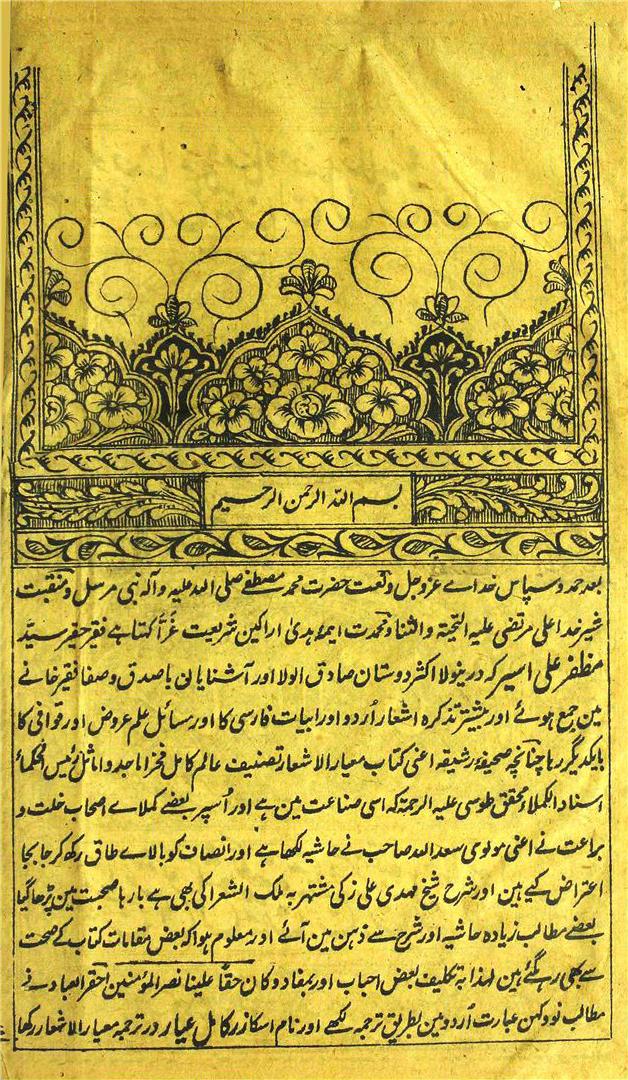 بسم الله الرحمن الرحيم
بعد حمد و سپاس خداے عزوجل و نعت حضرت محمد مصطفے صلی اللہ علیہ و آلہ نبی مرسل و منقبت
شیر خدا علی مرتضی علیہ التحیتہ و الثنا و محمدت ایمہ ہدیٰ اراکین شریعت غرّا کہتا ہے فقیر حقیر سیّد
مظفر علی اسیر کہ درینولا اکثر دوستان صادق الولا اور آشنایان باصدق و صفا فقیر خانے
مین جمع ہوئے اور بیشتر تذکرہ اشعار اُردو اور ابیات فارسی کا اور مسائل علم عروض اور قوافی کا
بایکدیگر رہا چنانچہ صحیفۂ رشیقہ اعنی کتاب معیار الاشعار تصنیف عالم کامل فخر اماجد و اماثل رئیس الحکماء
استاد الکملاء محقق طوسی علیہ الرحمۃ کہ اسی صناعت مین ہے اور اُسپر بعضے کملاے اصحاب خلت و
براعت نے اعنی مولوی سعد اللہ صاحب نے حاشیہ لکھا ہے اور انصاف کو بالاے طاق رکھ کر جا بجا
اعتراض کیے ہین اور شرح شیخ مہدی علی زکی مشتہر بہ ملک الشعرا کی بھی ہے بارہا صحبت مین پڑھا گیا
بعضے مطالب زیادہ حاشیہ اور شرح سے ذہن مین آئے اور معلوم ہوا کہ بعض مقامات کتاب کے صحت
سے بھی رہ گئے ہین لہذا بہ تکلیف بعض احباب اور بمفاد و کان حقاً علینا نصر المؤمنین احقر العباد نے
مطالب نو و کہن عبارت اُردو مین بطریق ترجمہ لکھے اور نام اسکا زر کامل عیار در ترجمہ معیار الاشعار رکھا